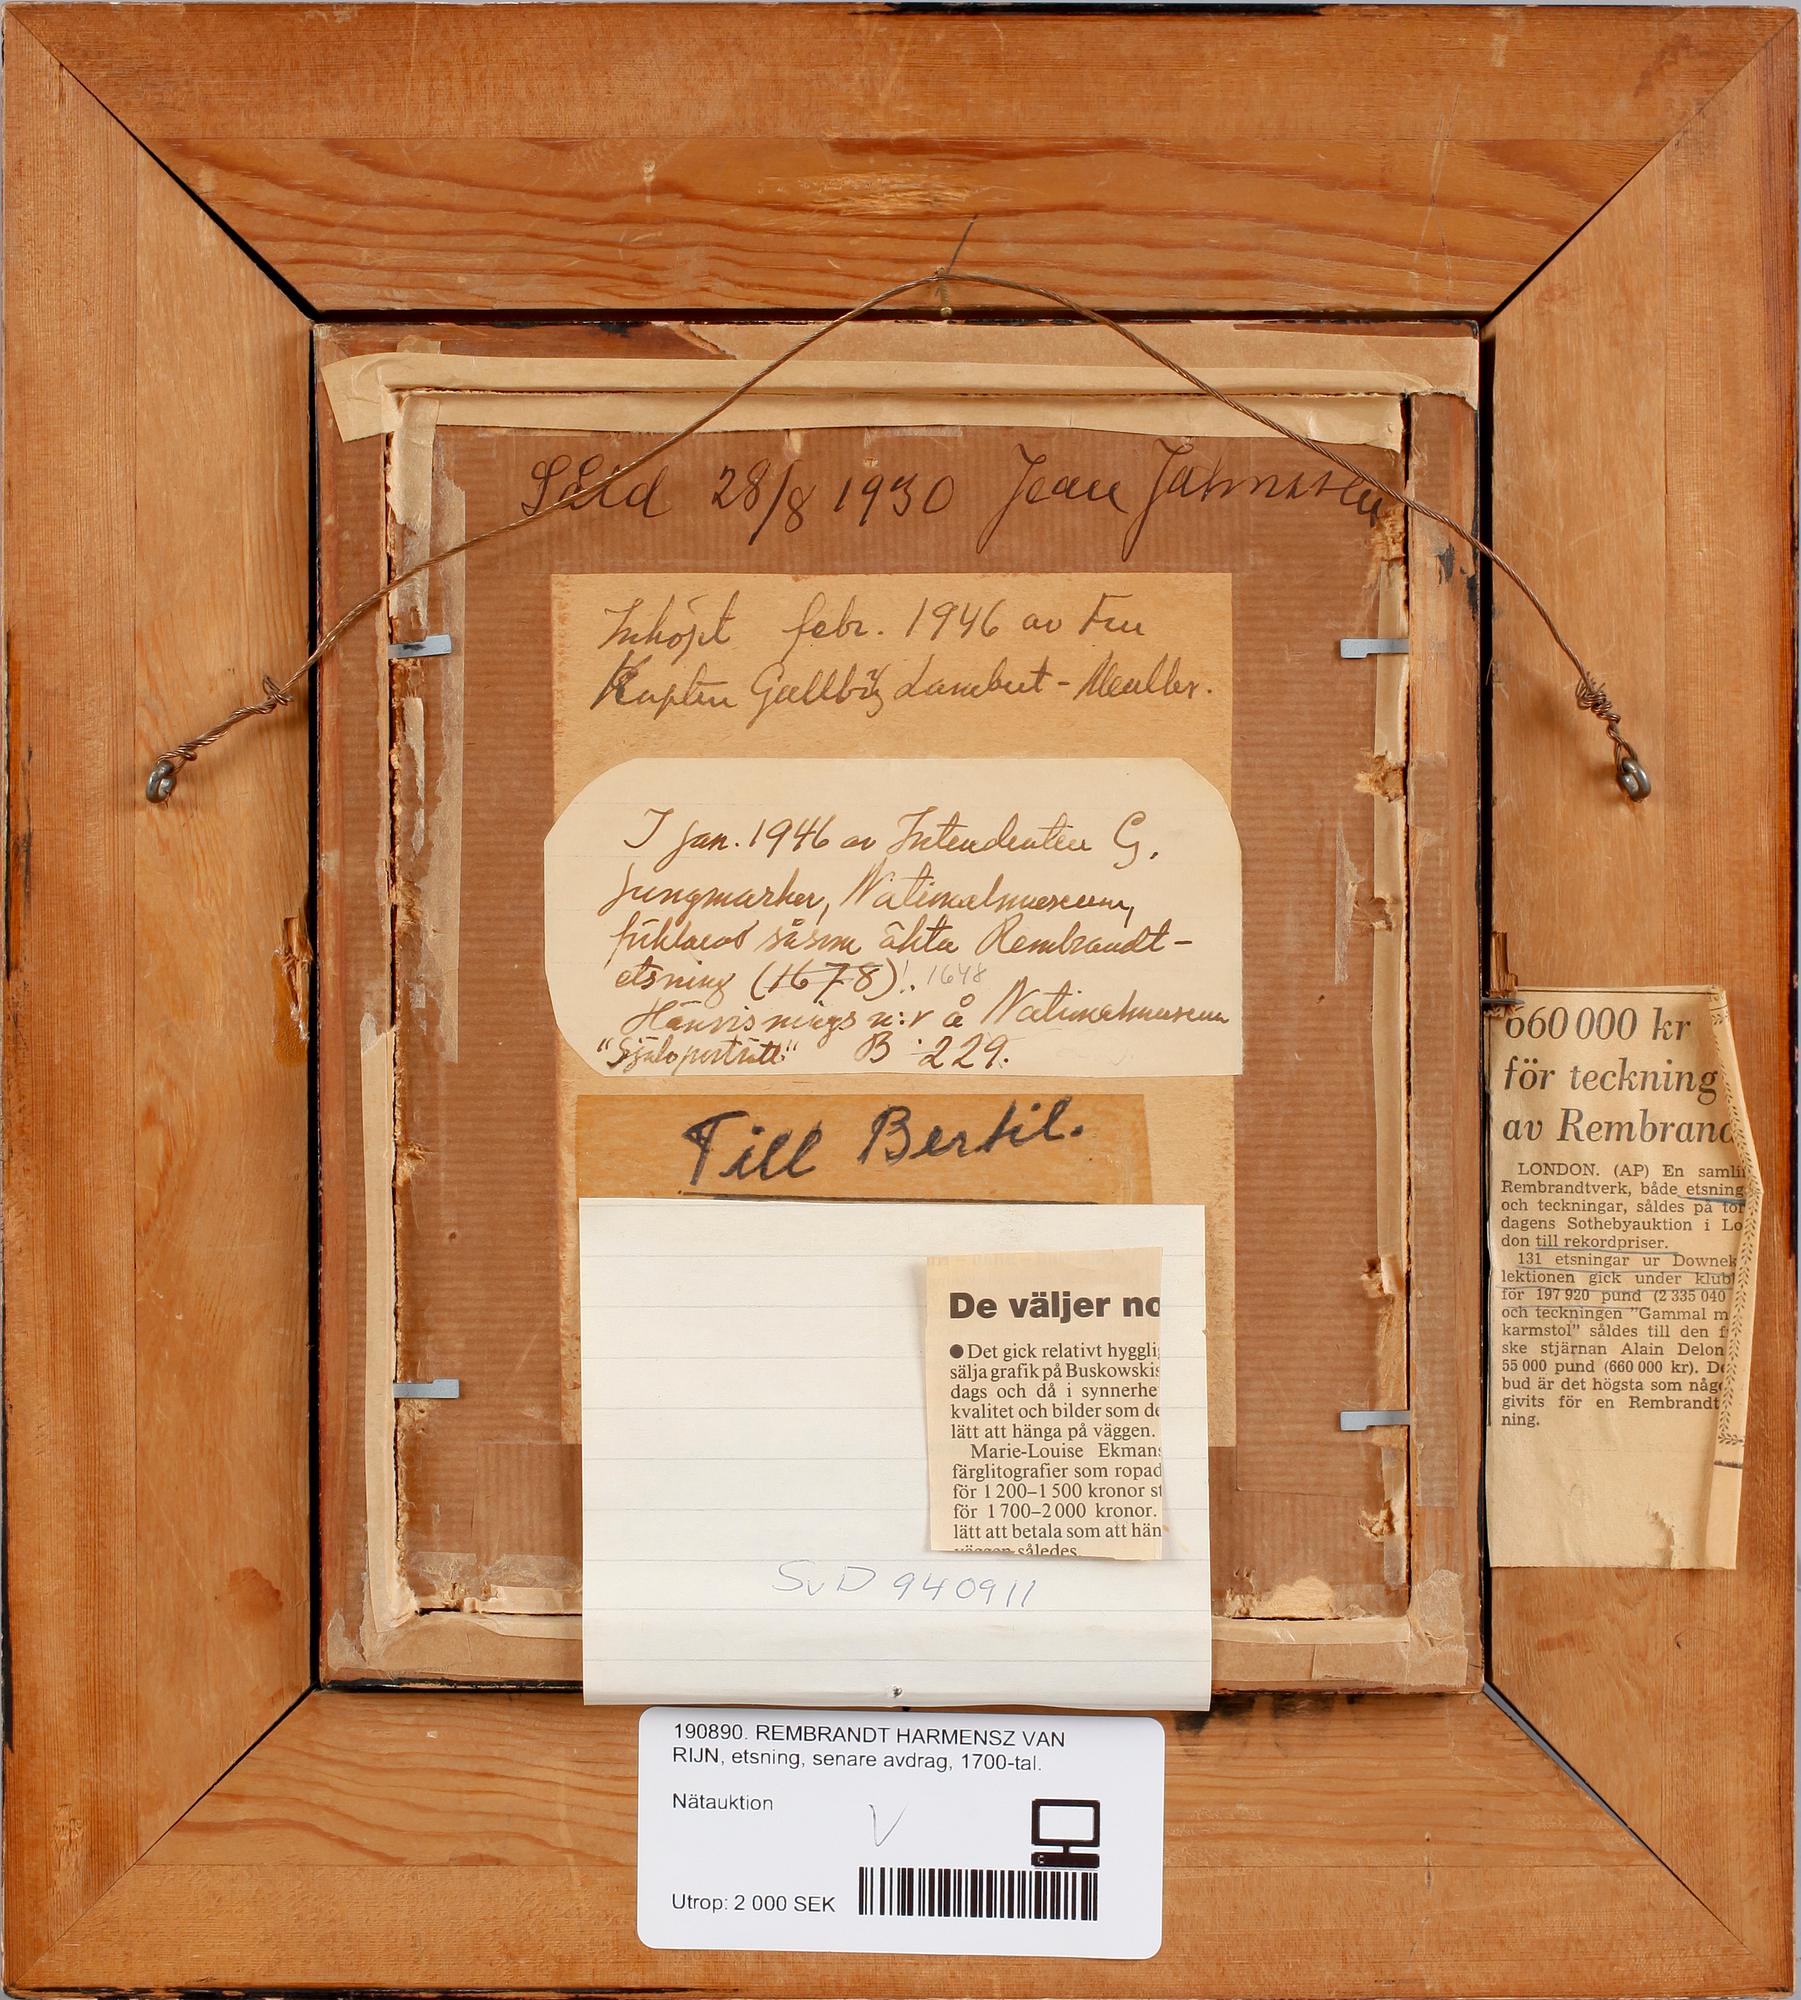 Såld 28/8 1930 Jean Jahnsson
Inköpt febr. 1946 av Fru
Kapten Lambert-Meuller.
I jan. 1946 av Intendenten G.
Jungmarker, Nationalmuseum,
förklarad såsom äkta Rembrandt-
etsning (1678)! 1648
Hänvisnings n:r å Nationalmuseum
"Självporträtt" B 229.
Till Bertil.
De väljer no
● Det gick relativt hyggli
sälja grafik på Buskowskis
dags och då i synnerhe
kvalitet och bilder som de
lätt att hänga på väggen.
Marie-Louise Ekmans
färglitografier som ropad
för 1 200–1 500 kronor st
för 1 700–2 000 kronor.
lätt att betala som att hän
väggen således.
SvD 940911
660 000 kr
för teckning
av Rembrand
LONDON. (AP) En samli
Rembrandtverk, både etsning
och teckningar, såldes på tor
dagens Sothebyauktion i Lo
don till rekordpriser.
131 etsningar ur Downek
lektionen gick under klub
för 197 920 pund (2 335 040
och teckningen "Gammal m
karmstol" såldes till den f
ske stjärnan Alain Delon
55 000 pund (660 000 kr). De
bud är det högsta som någ
givits för en Rembrandt
ning.
190890. REMBRANDT HARMENSZ VAN
RIJN, etsning, senare avdrag, 1700-tal.
Nätauktion
V
Utrop: 2 000 SEK